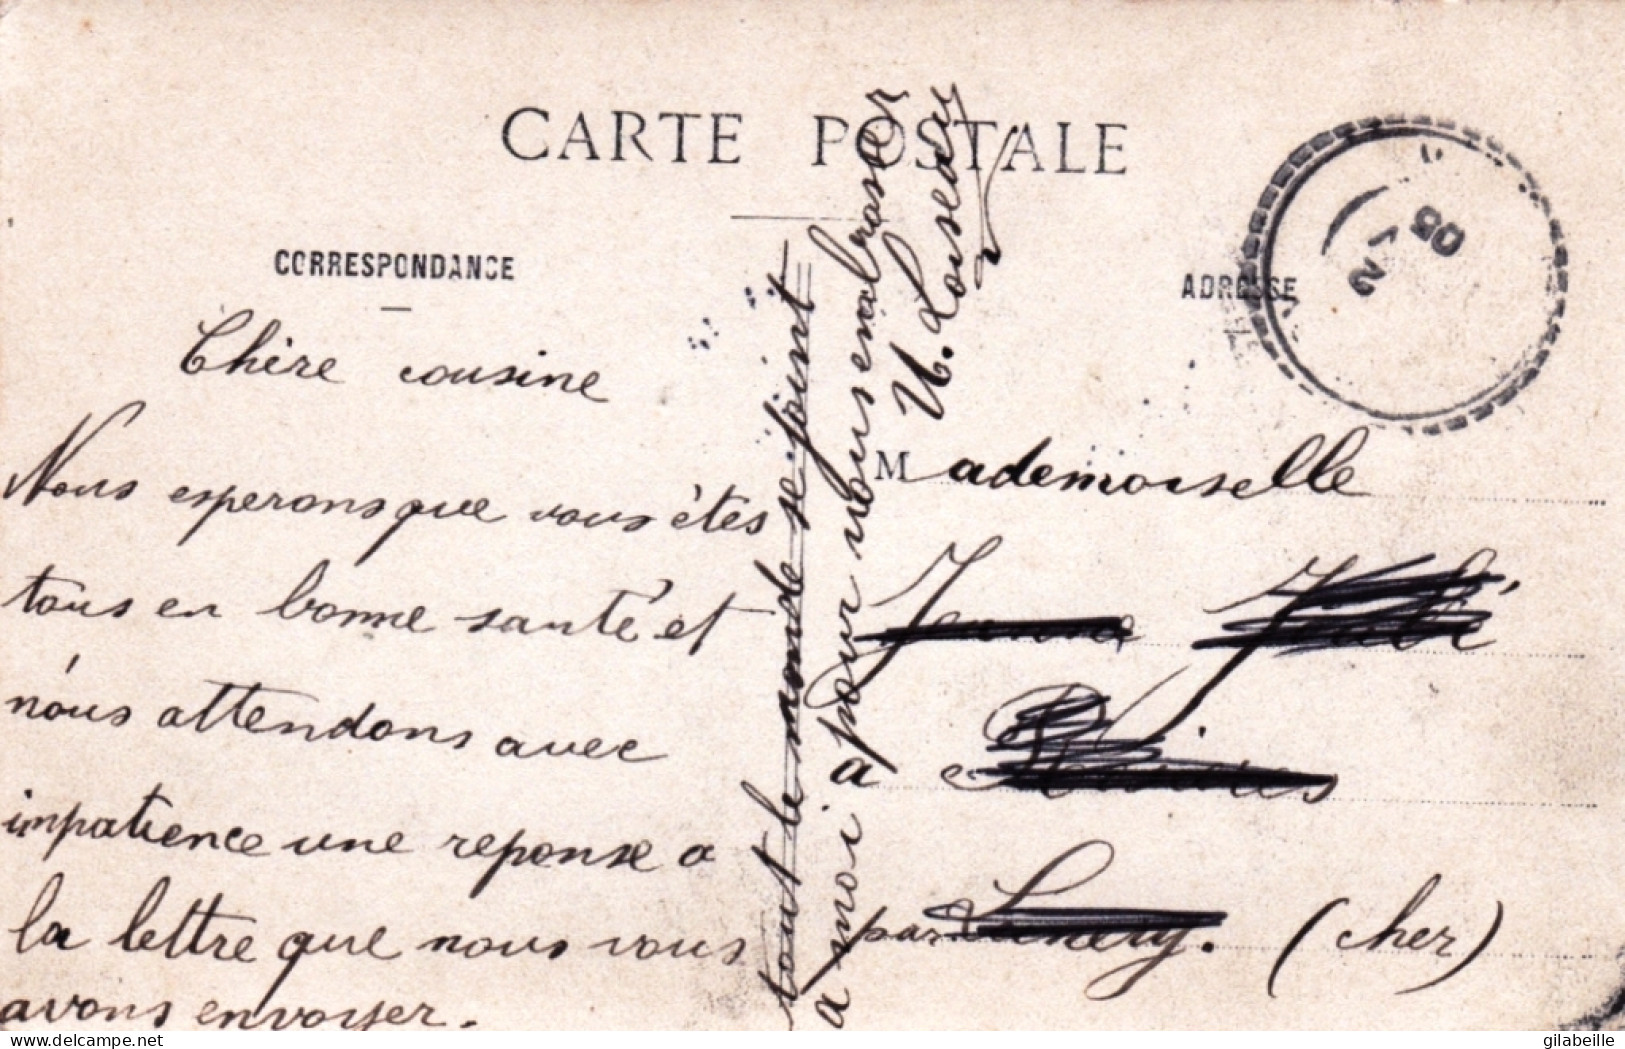 CARTE POSTALE
CORRESPONDANCE
ADRESSE
Chère cousine
Nous esperons que vous êtes
tous en bonne santé et
nous attendons avec
impatience une reponse a
la lettre que nous vous
avons envoyer.
tout le monde se joint
a moi a pour vous embrasser
Loiseau
Mademoiselle
Jeanne
par Lunery. (Cher)
05
delcampe.net
gilabeille